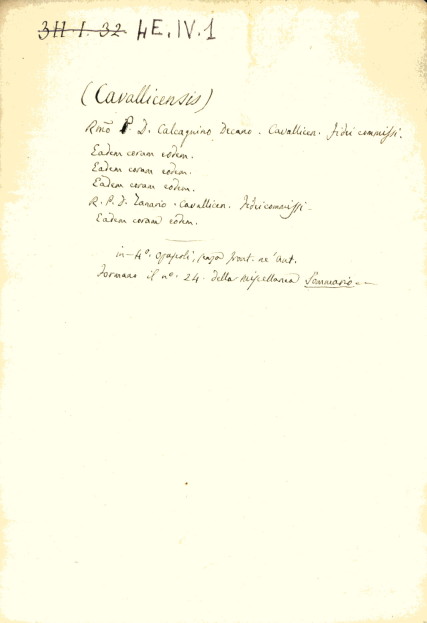 3H.I.32. 4E.IV.1
(Cavallicensis)
Rmo P. D. Calcagnino Decano. Cavallicen. fidei commissi.
Eadem coram eodem.
Eadem coram eodem.
Eadem coram eodem.
R. P. D. Lanario. Cavallicen. fidei commissi.
Eadem coram eodem.
in-4°. opuscoli, senza front. nè aut.
Formano il n°. 24. della miscellanea Sommario